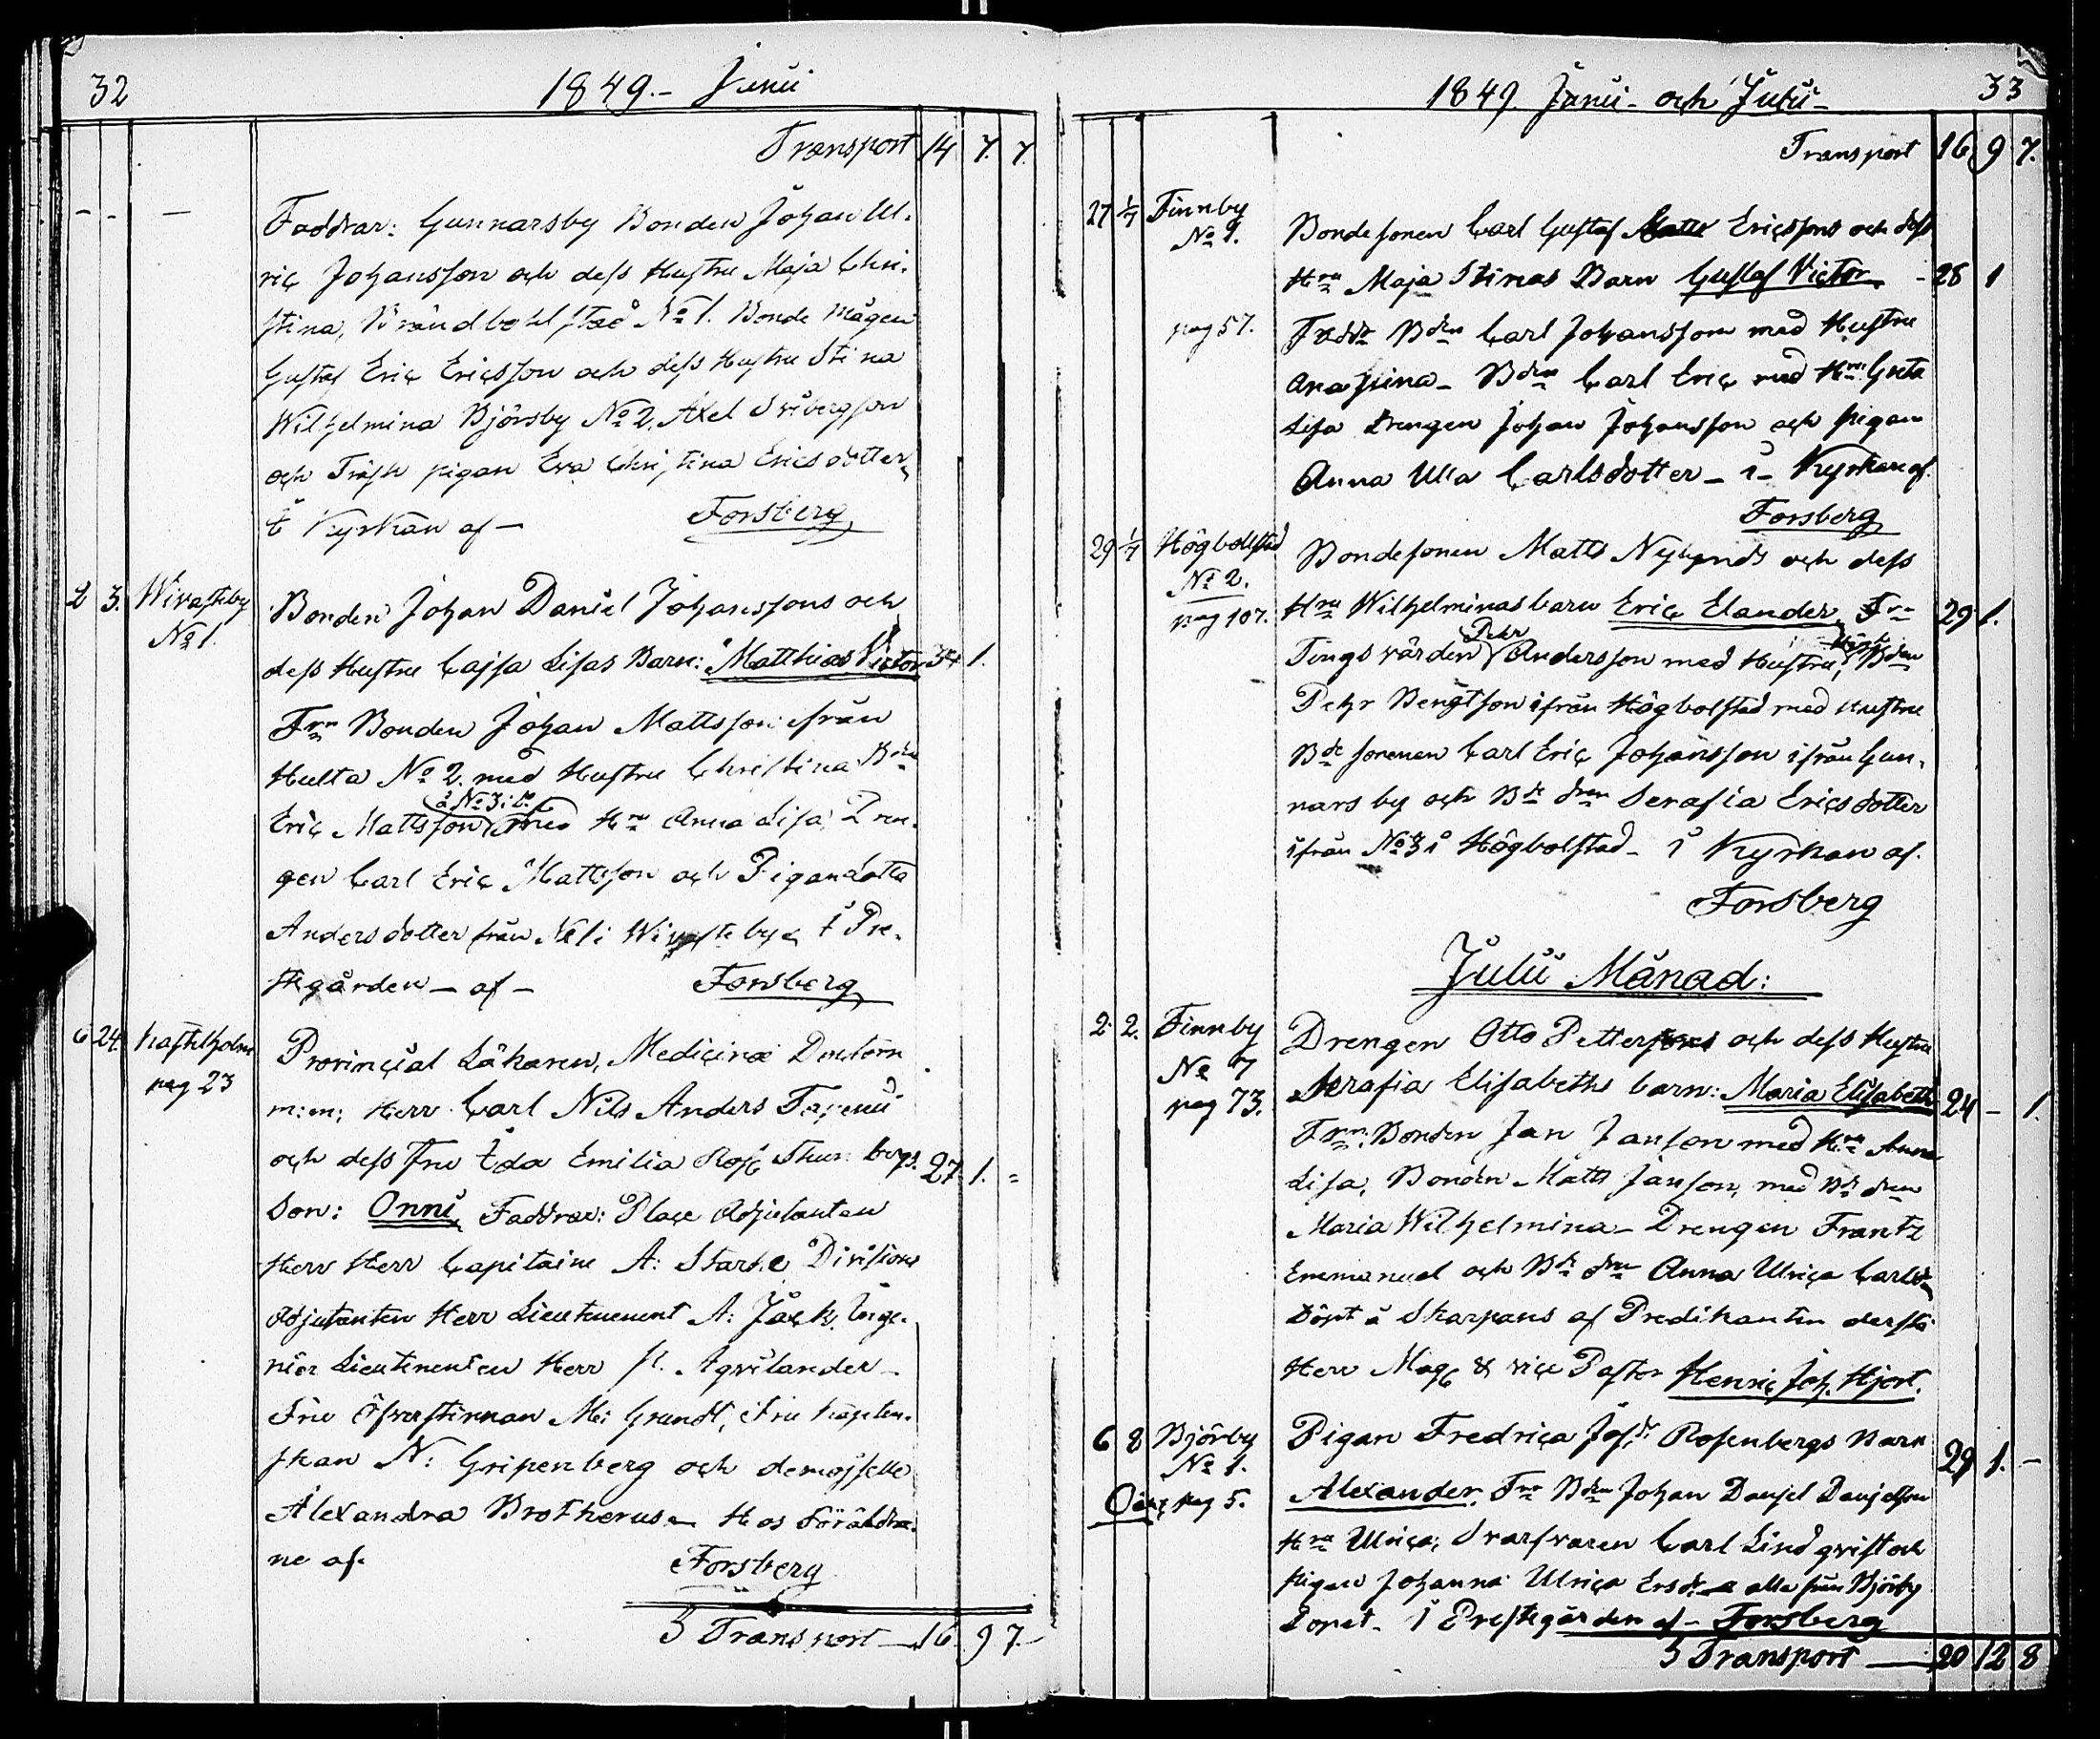 32
1849. - Junii
Transport 14 7. 7.
- - -
Faddrar: Gunnarsby Bonden Johan Ul-
ric Johansson och dess Hustru Maja Chri-
stina, Brändbohlstad No 1. Bonde mågen
Gustaf Eric Ericsson och dess Hustru Stina
Wilhelmina Björsby No 2, Axel
och Träsk pigan Eva Christina Ericsdotter
i Kyrkan af - Forsberg
2 3. Wivasteby Bonden Johan Daniel Johanssons och
No 1.
dess Hustru Cajsa Lisas Barn: Matthias Victor 34 1.
Frn Bonden Johan Mattsson ifrån
Hulta No 2. med Hustru Christina Bdn
å No 3 i do
Eric Mattsson med Hru Anna Lisa, Dren-
gen Carl Eric Mattsson och Pigan Lotta
Andersdotter från No 1 i Wivasteby i Pre-
stgården - af - Forsberg
6 24. Kastelholm Provincial Läkaren, Medicinæ Doctorn
pag 23
m: m; Herr Carl Nils Anders
och dess Fru Ida Emilia 27. 1. =
Son: Onni, Faddrar: Place Adjutanten
Herr Herr Capitaine A: Starke, Divisions
Adjutanten Herr Lieutenent A: Jäck, Inge-
niör Lieutenenten Herr
Fru Öfverstinnan M: Grundt, Fru Kapten-
skan N: Gripenberg och demoiselle
Alexandra Brotherus - Hos Föräldra-
ne af. Forsberg
Transport - 16 9 7.
1849. Junii - och Julii - 33
Transport 16 9 7.
27 1/7 Finnby
No 9. Bondesonen Carl Gustaf Matts Ericssons och dess
Hru Maja Stinas Barn Gustaf Victor - 28 1
pag 57. Faddr Bdn Carl Johansson med Hustru
Ana Stina - Bdn Carl Eric med Hru Greta
Lisa Drengen Johan Johansson och pigan
Anna Ulla Carlsdotter - i - Kyrkan af.
Forsberg
29 1/7 Högbolstad Bondesonen Matts Nylunds och dess
No 2.
pag 107. Hru Wilhelminas barn Eric Elander, Frn 29 1.
Pehr
Tingsvärden Andersson med Hustru, Bdn
Pehr Bengtson ifrån Högbolstad med Hustru
Bde sonen Carl Eric Johansson ifrån Gun-
narsby och Bde drn Serafia Ericsdotter
ifrån No 3 i Högbolstad - i Kyrkan af.
Forsberg
Julii Månad:
2. 2. Finnby Drengen Otto Pettersons och dess Hustru
No 7
pag 73. Serafia Elisabeths barn: Maria Elisabeth 24 - 1.
Frn: Bonden Jan Janson med Hru Anna
Lisa, Bonden Matts Janson, med Bde drn
Maria Wilhelmina - Drengen Frantz
Emmanuel och Bde drn Anna Ulrica Carlsd.
Döpt å Skarpans af Predikanten derstä
Herr Mag & vice Pastor Henric Joh. Hjort.
6 8 Björby Pigan Fredrica Rosenbergs Barn
No 1. 29 1. -
Oäkt pag 5. Alexander, Frn Bdn Johan Danjel Danjelson
Hru Ulrica; Svarfvaren Carl Lindqvist och
pigan Johanna Ulrica Ersdr alla från Björby
Döpt. i Prestegården af - Forsberg
Transport - 20 12 8